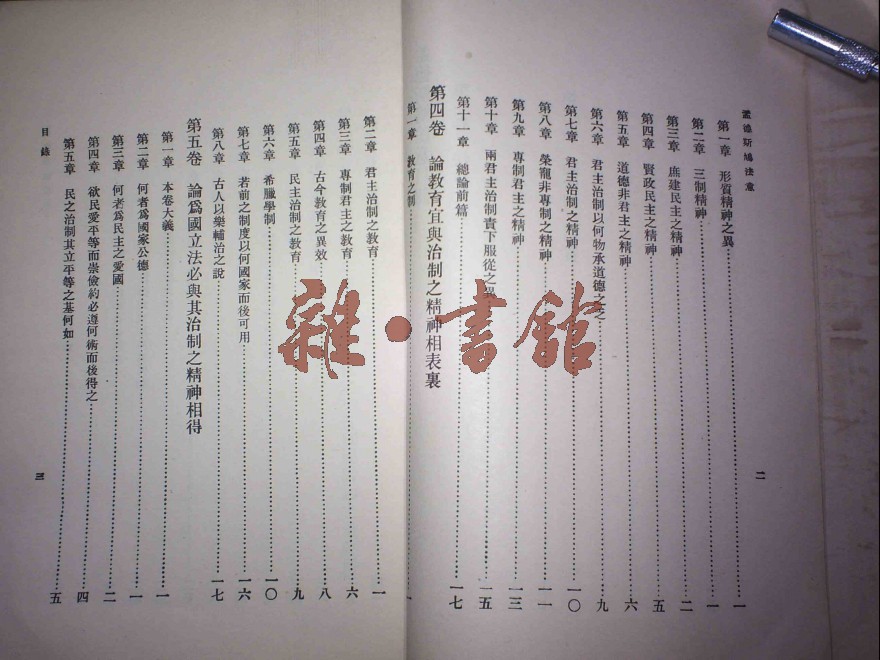 孟德斯鳩法意
二
第一章 形質精神之異 一
第二章 三制精神 一
第三章 庶建民主之精神 二
第四章 賢政民主之精神 五
第五章 道德非君主之精神 六
第六章 君主治制以何物承道德之乏 九
第七章 君主治制之精神 一〇
第八章 榮寵非專制之精神 一一
第九章 專制君主之精神 一三
第十章 兩君主治制責下服從之異 一五
第十一章 總論前篇 一七
第四卷 論教育宜與治制之精神相表裏
第一章 教育之制 一
第二章 君主治制之教育 一
第三章 專制君主之教育 六
第四章 古今教育之異效 八
第五章 民主治制之教育 九
第六章 希臘學制 一〇
第七章 若前之制度以何國家而後可用 一六
第八章 古人以樂輔治之說 一七
第五卷 論爲國立法必與其治制之精神相得
第一章 本卷大義 一
第二章 何者爲國家公德 一
第三章 何者爲民主之愛國 二
第四章 欲民愛平等而崇儉約必遵何術而後得之 四
第五章 民之治制其立平等之基何如 五
目錄
三
雜·書館